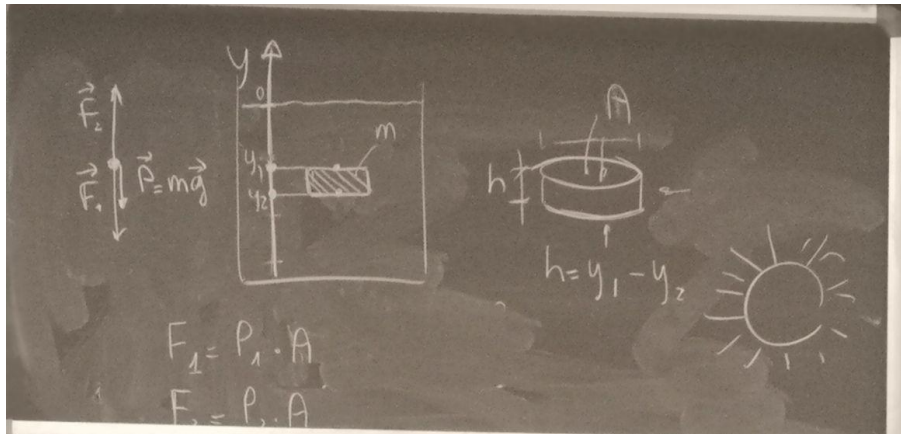 y
0
F₂
F₁
P = mg
y₁
y₂
m
A
h
h = y₁ - y₂
F₁ = P₁ · A
F₂ = P₂ · A